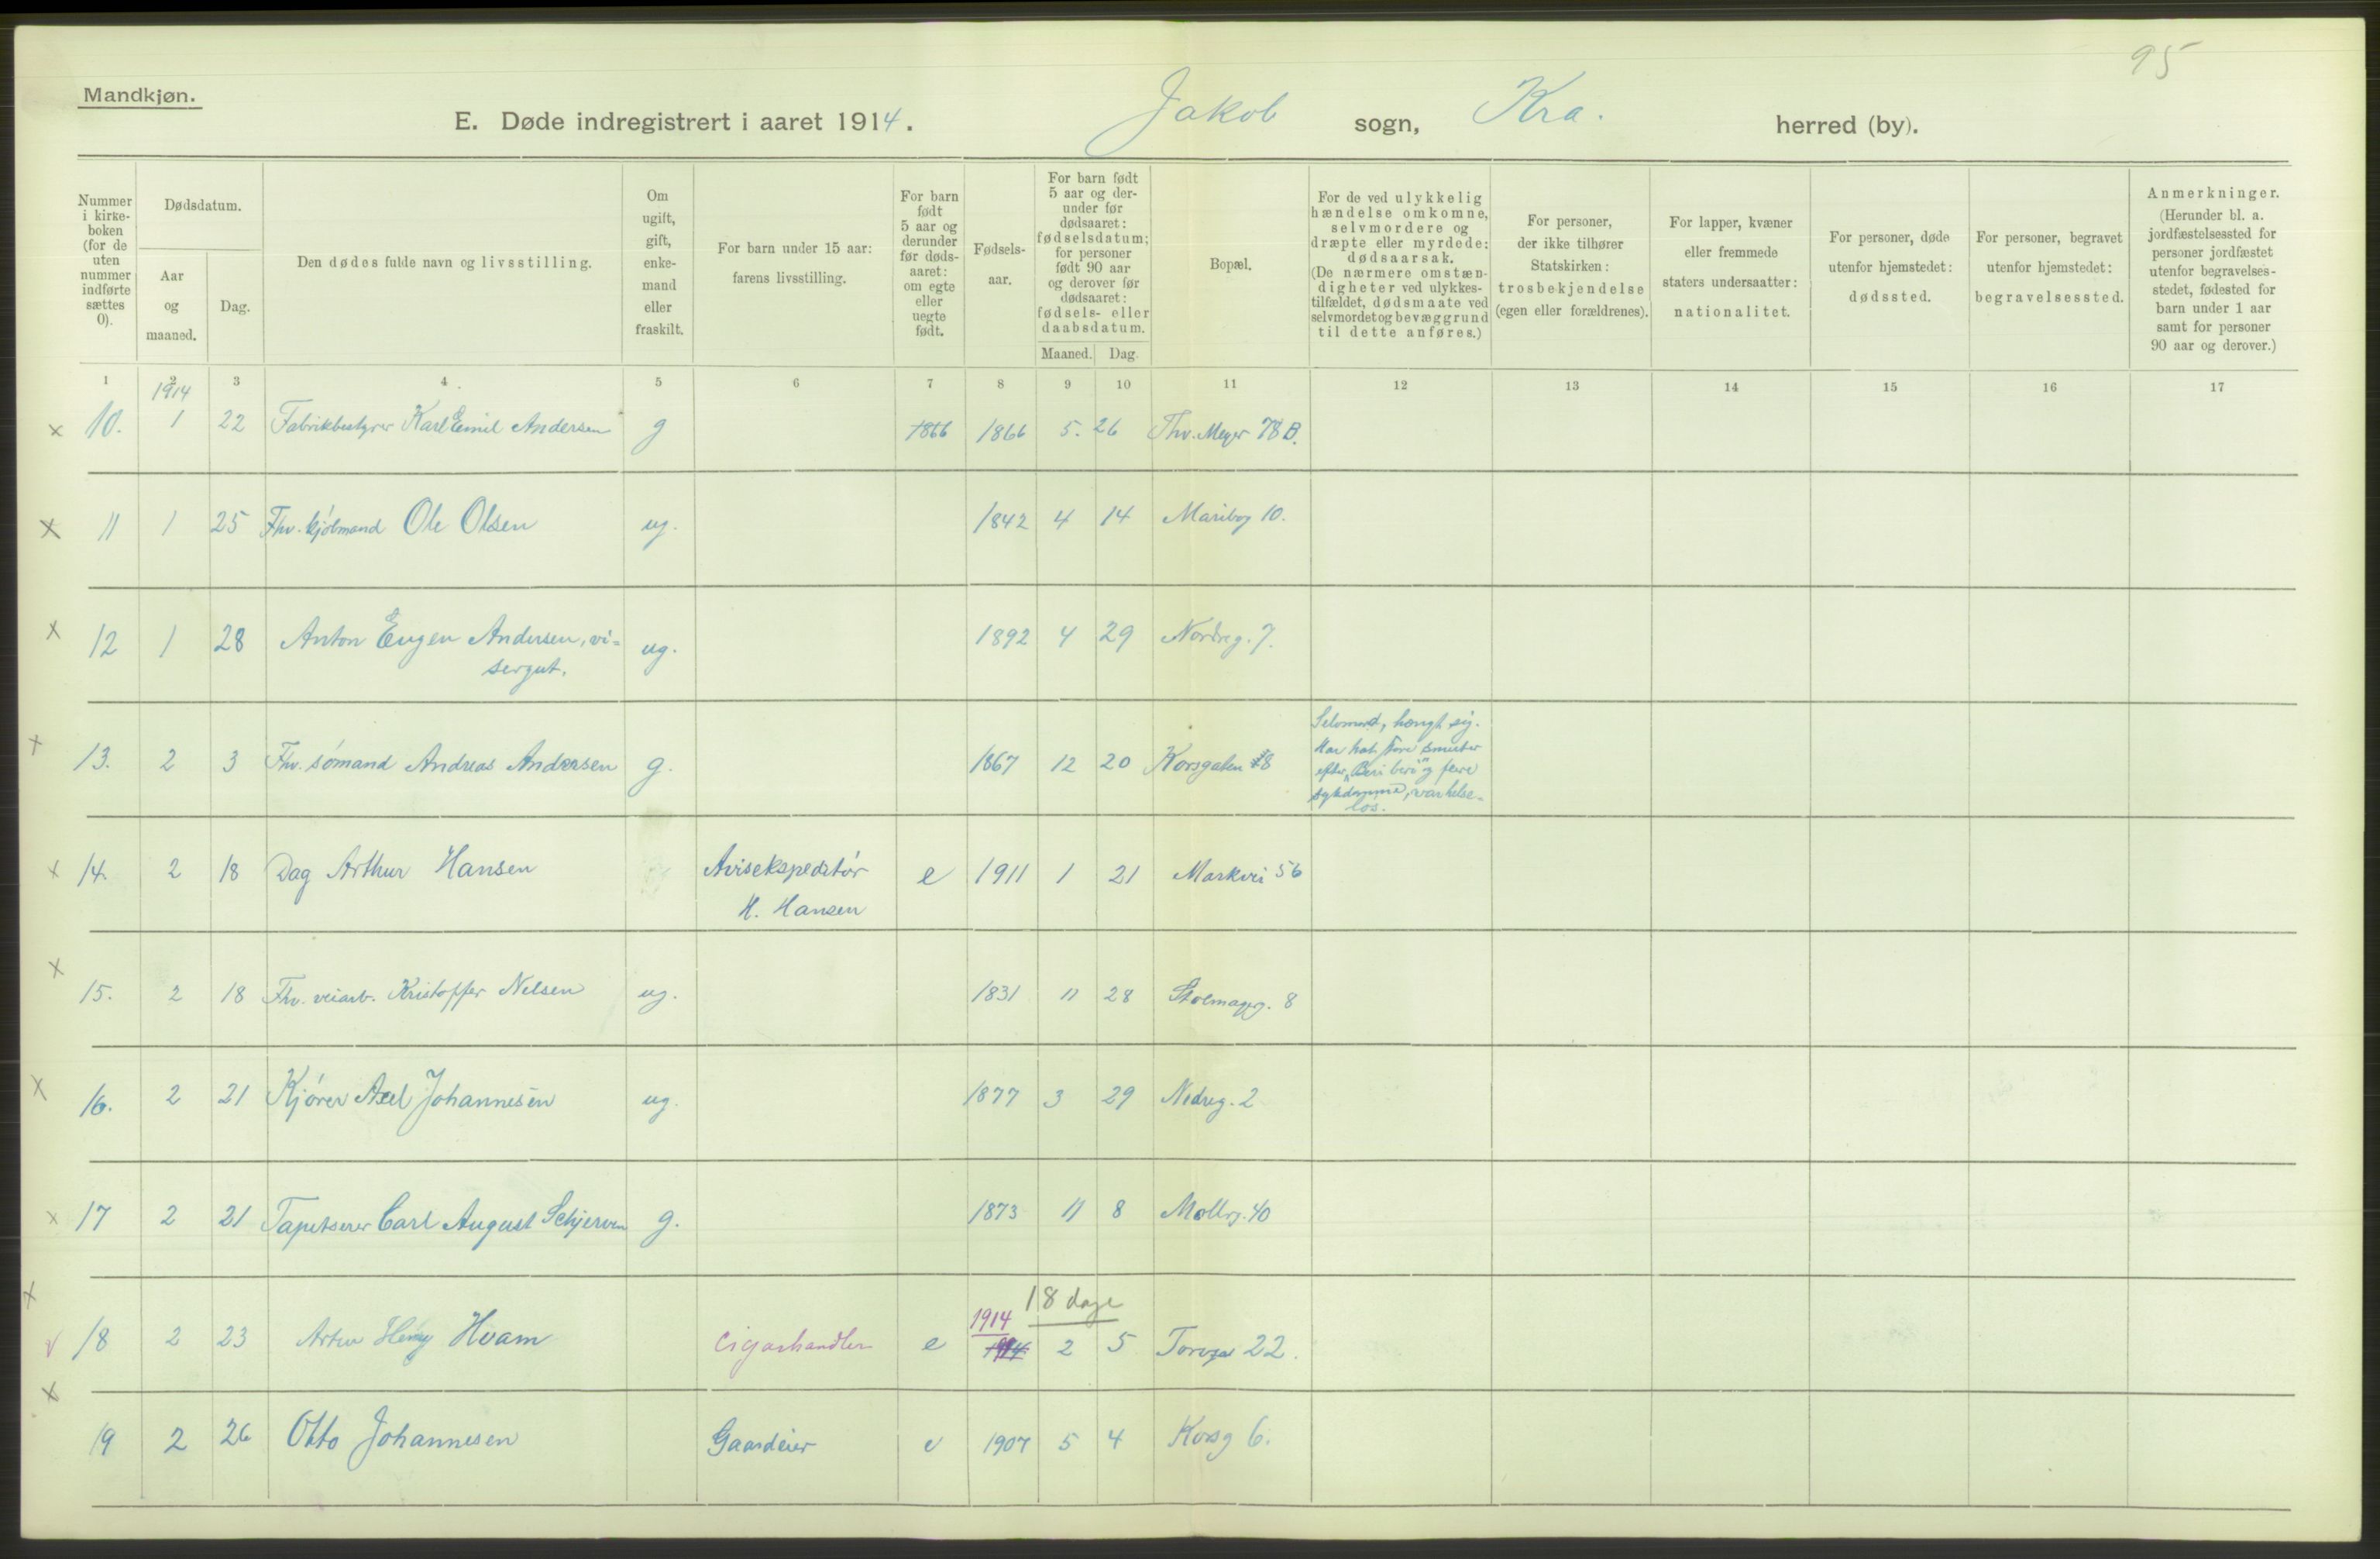 95
Mandkjøn.
E. Døde indregistrert i aaret 1914. Jakob sogn, Kra. herred (by).
Nummer i kirkeboken (for de uten nummer indførte sættes 0).
Dødsdatum.
Aar og maaned.
Dag.
Den dødes fulde navn og livsstilling.
Om ugift, gift, enkemand eller fraskilt.
For barn under 15 aar: farens livsstilling.
For barn født 5 aar og derunder før dødsaaret: om egte eller uegte født.
Fødselsaar.
For barn født 5 aar og derunder før dødsaaret: fødselsdatum; for personer født 90 aar og derover før dødsaaret: fødsels- eller daabsdatum.
Maaned. Dag.
Bopæl.
For de ved ulykkelig hændelse omkomne, selvmordere og dræpte eller myrdede: dødsaarsak. (De nærmere omstændigheter ved ulykkestilfældet, dødsmaate ved selvmordet og bevæggrund til dette anføres.)
For personer, der ikke tilhører Statskirken: trosbekjendelse (egen eller forældrenes).
For lapper, kvæner eller fremmede staters undersaatter: nationalitet.
For personer, døde utenfor hjemstedet: dødssted.
For personer, begravet utenfor hjemstedet: begravelsessted.
Anmerkninger. (Herunder bl. a. jordfæstelsessted for personer jordfæstet utenfor begravelsesstedet, fødested for barn under 1 aar samt for personer 90 aar og derover.)
1 2 3 4 5 6 7 8 9 10 11 12 13 14 15 16 17
1914
x 10. 1 22 Fabrikbestyrer Karl Emil Andersen g 1866 1866 5. 26 Thv. Meyer 78 B.
x 11 1 25 Fhv. kjøbmand Ole Olsen ug. 1842 4 14 Maribog 10.
x 12 1 28 Anton Eugen Andersen, vi= ug. 1892 4 29 Nordreg. 7.
sergut.
x 13. 2 3 Fhv. sømand Andreas Andersen g. 1867 12 20 Korsgaten 8
Selvmord, hængt sig.
Har hat store smerter
efter "Beri beri" og flere
sykdomme, var helse-
løs.
x 14. 2 18 Dag Arthur Hansen Avisekspeditør e 1911 1 21 Markvei 56
H. Hansen
x 15. 2 18 Fhv. veiarb. Kristoffer Nelsen ug. 1831 11 28 Stolmagerg. 8
x 16. 2 21 Kjører Axel Johannesen ug. 1877 3 29 Nedreg. 2
x 17 2 21 Tapetserer Carl August Schjerven g. 1873 11 8 Møllerg. 40
x 1914 18 dage
v 18 2 23 Artur Henry Hvam Cigarhandler e 1914 2 5 Torvgt 22.
x 19 2 26 Otto Johannesen Gaardeier e 1907 5 4 Korsg 6.